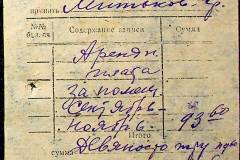 принять Митьков. гр.
№№ бил.сч Содержание записи Сумма
Арендн.
плата
за помещ.
Сентябрь-
ноябрь. 93 60
Итого
сумма Девяносто три руб